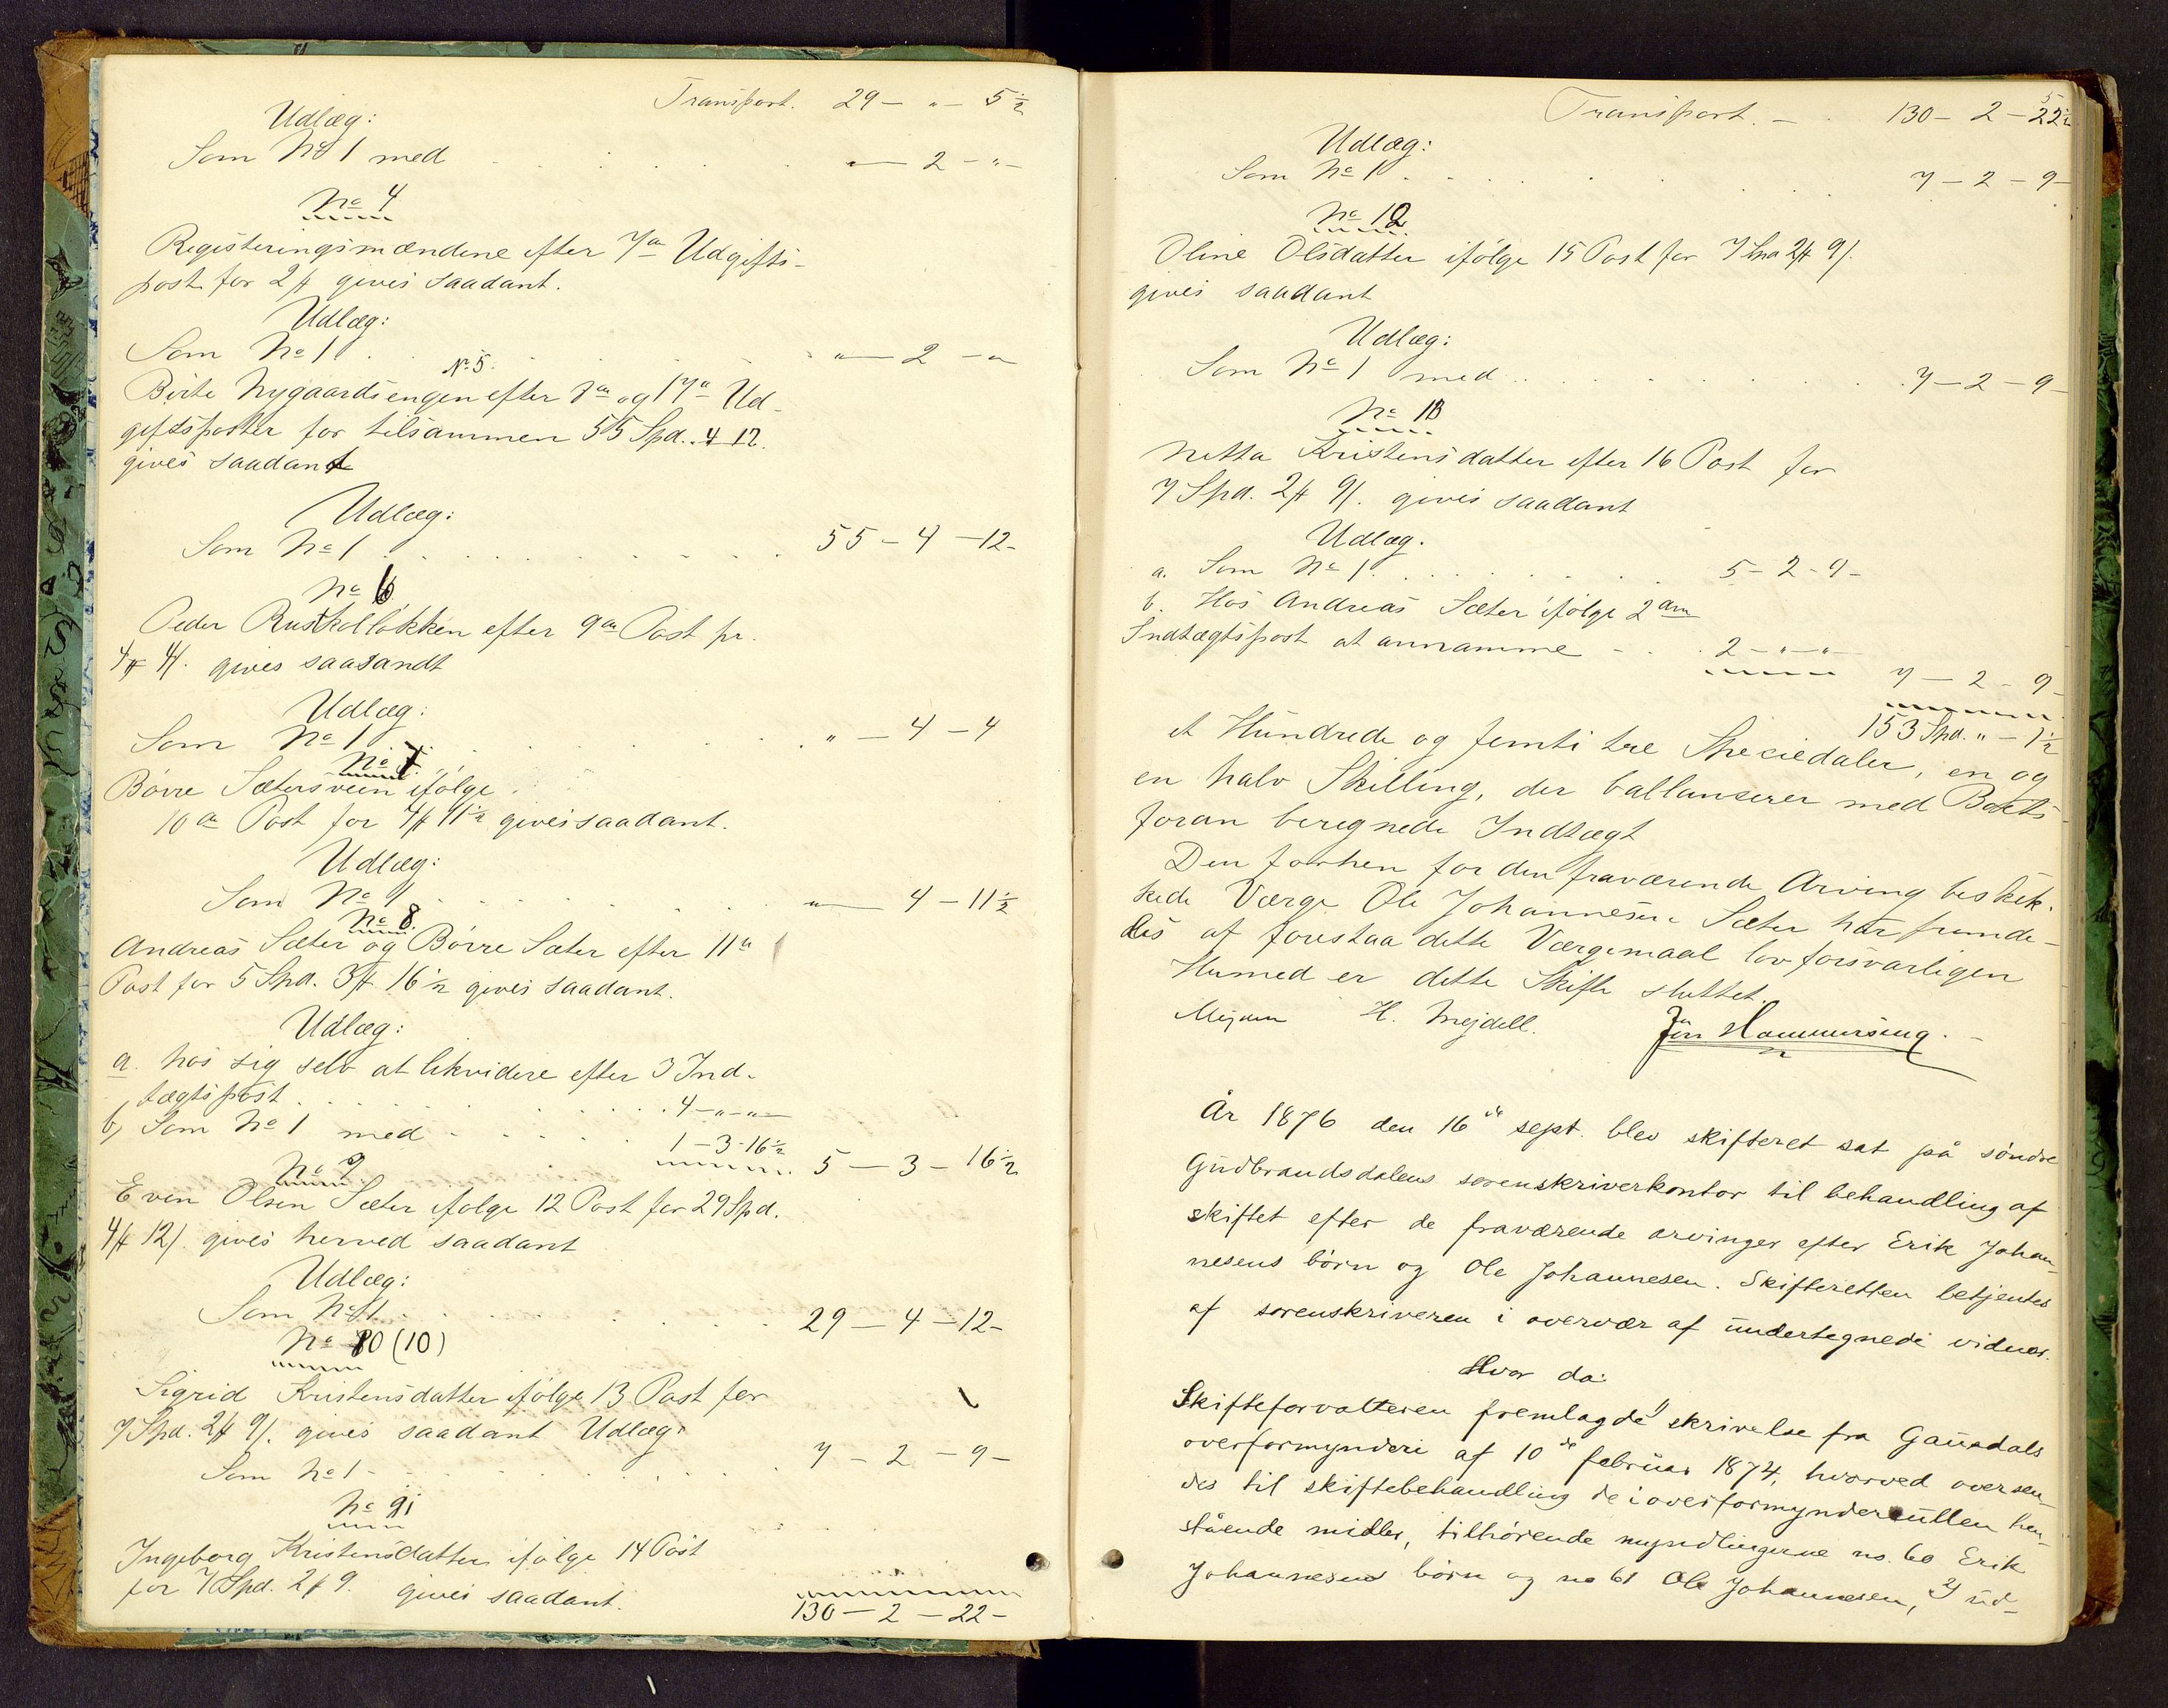 Transport. 29 - " - 5 1/2
Udlæg:
Som No 1 med . . . . " - 2 - " -
No 4
Registeringsmændene efter 7de Udgifts-
post for 2 # gives saadant.
Udlæg:
Som No 1 . . . . " - 2 - "
No 5.
Birte Nygaardsengen efter 8de og 17de Ud-
giftsposter for tilsammen 55 Spd. 4 12.
gives saadant
Udlæg:
Som No 1 . . . . 55 - 4 - 12 -
No 6
Peder Ruskolløkken efter 9de Post for
4 # 4 /. gives saasandt
Udlæg:
Som No 1 . . . . " - 4 - 4
No 7.
Børre Sætersveen ifølge
10de Post for 4 # 11 1/2 gives saadant.
Udlæg:
Som No 1 . . . . " - 4 - 11 1/2
No 8.
Andreas Sæter og Børre Sæter efter 11de
Post for 5 Spd. 3 # 16 1/2 gives saadant.
Udlæg:
a. hos sig selv at likvidere efter 3 Ind-
tægtspost . . . . 4 - " - " -
b, Som No 1 med . . . . 1 - 3 - 16 1/2 5 - 3 - 16 1/2
No 9
Even Olsen Sæter ifølge 12 Post for 29 Spd.
4 # 12 /. gives herved saadant
Udlæg:
Som No 1 . . . . 29 - 4 - 12 -
No 10 (10)
Sigrid Kristensdatter ifølge 13 Post for
7 Spd. 2 # 9 /. gives saadant Udlæg:
Som No 1 - . . . . 7 - 2 - 9 -
No 11
Ingeborg Kristensdatter ifølge 14 Post
for 7 Spd. 2 # 9. gives saadant.
130 - 2 - 22 -
Transport. - . 130 - 2 - 22 1/2
Udlæg:
Som No 1 . . . . 7 - 2 - 9 -
No 12
Oline Olsdatter ifølge 15 Post for 7 Spd 2 # 9 /.
gives saadant
Udlæg:
Som No 1 med . . . . 7 - 2 - 9 -
No 13
Netta Kristensdatter efter 16 Post for
7 Spd. 2 # 9 /. gives saadant
Udlæg.
a. Som No 1 . . . . 5 - 2 - 9 -
b. Hos Andreas Sæter ifølge 2den
Indtægtspost at annamme - . . 2 - " - " -
7 - 2 - 9 -
153 Spd. " - 1 1/2
et Hundrede og femti tre Speciedaler, en og
en halv Skilling, der ballanserer med Boets
foran beregnede Indtægt
Den forhen for den fraværende Arving beskik-
kede Værge Ole Johannesen Sæter har fremde-
les at forestaa dette Værgemaal lovforsvarligen
Hermed er dette Skifte sluttet.
H. Mejdell. Jön Hammerseng.
År 1876 den 16de sept. blev skifteret sat på søndre
Gudbrandsdalens sorenskriverkontor til behandling af
skiftet efter de fraværende arvinger efter Erik Johan-
nesens börn og Ole Johannesen. Skifteretten betjentes
af sorenskriveren i overvær af undertegnede vidner.
Hvor da:
Skifteforvalteren fremlagde 1) skrivelse fra Gausdals
overformynderi af 10de februar 1874, hvorved oversen-
des til skiftebehandling de i overformynderrullen hen-
stående midler, tilhörende myndlingerne no. 60 Erik
Johannesens börn og no 61 Ole Johannesen, 2) ud-